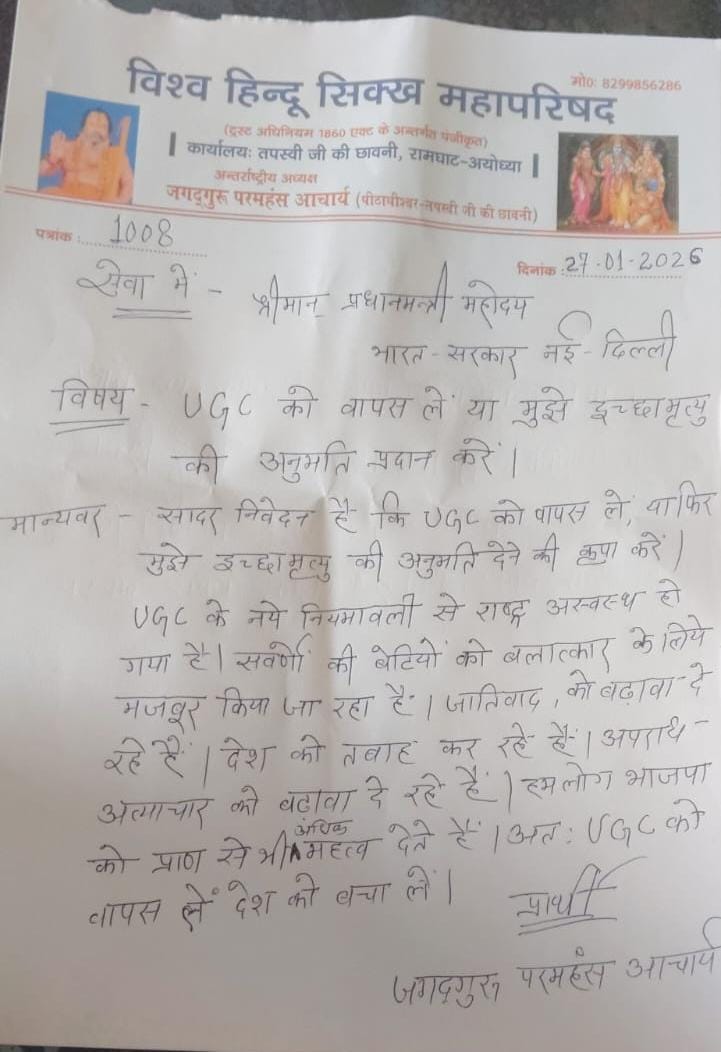 मो0: 8299856286
विश्व हिन्दू सिक्ख महापरिषद
(ट्रस्ट अधिनियम 1860 एक्ट के अन्तर्गत पंजीकृत)
कार्यालय: तपस्वी जी की छावनी, रामघाट-अयोध्या
अन्तर्राष्ट्रीय अध्यक्ष
जगद्गुरू परमहंस आचार्य (पीठाधीश्वर-तपस्वी जी की छावनी)
पत्रांक : 1008
दिनांक : 27-01-2026
सेवा में - श्रीमान् प्रधानमन्त्री महोदय
भारत-सरकार नई-दिल्ली
विषय - UGC को वापस लें या मुझे इच्छामृत्यु
की अनुमति प्रदान करें।
मान्यवर - सादर निवेदन है कि UGC को वापस लें, या फिर
मुझे इच्छामृत्यु की अनुमति देने की कृपा करें।
UGC के नये नियमावली से राष्ट्र अस्वस्थ हो
गया है। सवर्णों की बेटियों को बलात्कार के लिये
मजबूर किया जा रहा है। जातिवाद, को बढ़ावा दे
रहे हैं। देश को तबाह कर रहे हैं। अपराध-
अत्याचार को बढ़ावा दे रहे हैं। हम लोग भाजपा
को प्राण से भी अधिक महत्व देते हैं। अत: UGC को
वापस लें देश को बचा लें।
प्रार्थी
जगद्गुरू परमहंस आचार्य